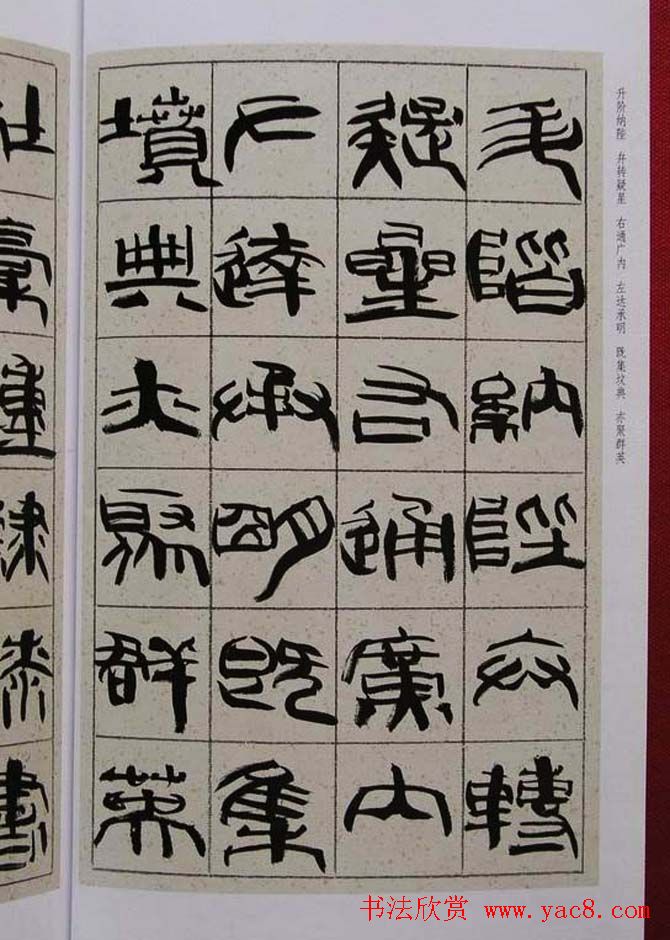 升阶纳陛 弁转疑星 右通广内 左达承明 既集坟典 亦聚群英
升階納陛弁轉
疑星右通廣內
左達承明既集
墳典亦聚群英
书法欣赏 www.yac8.com